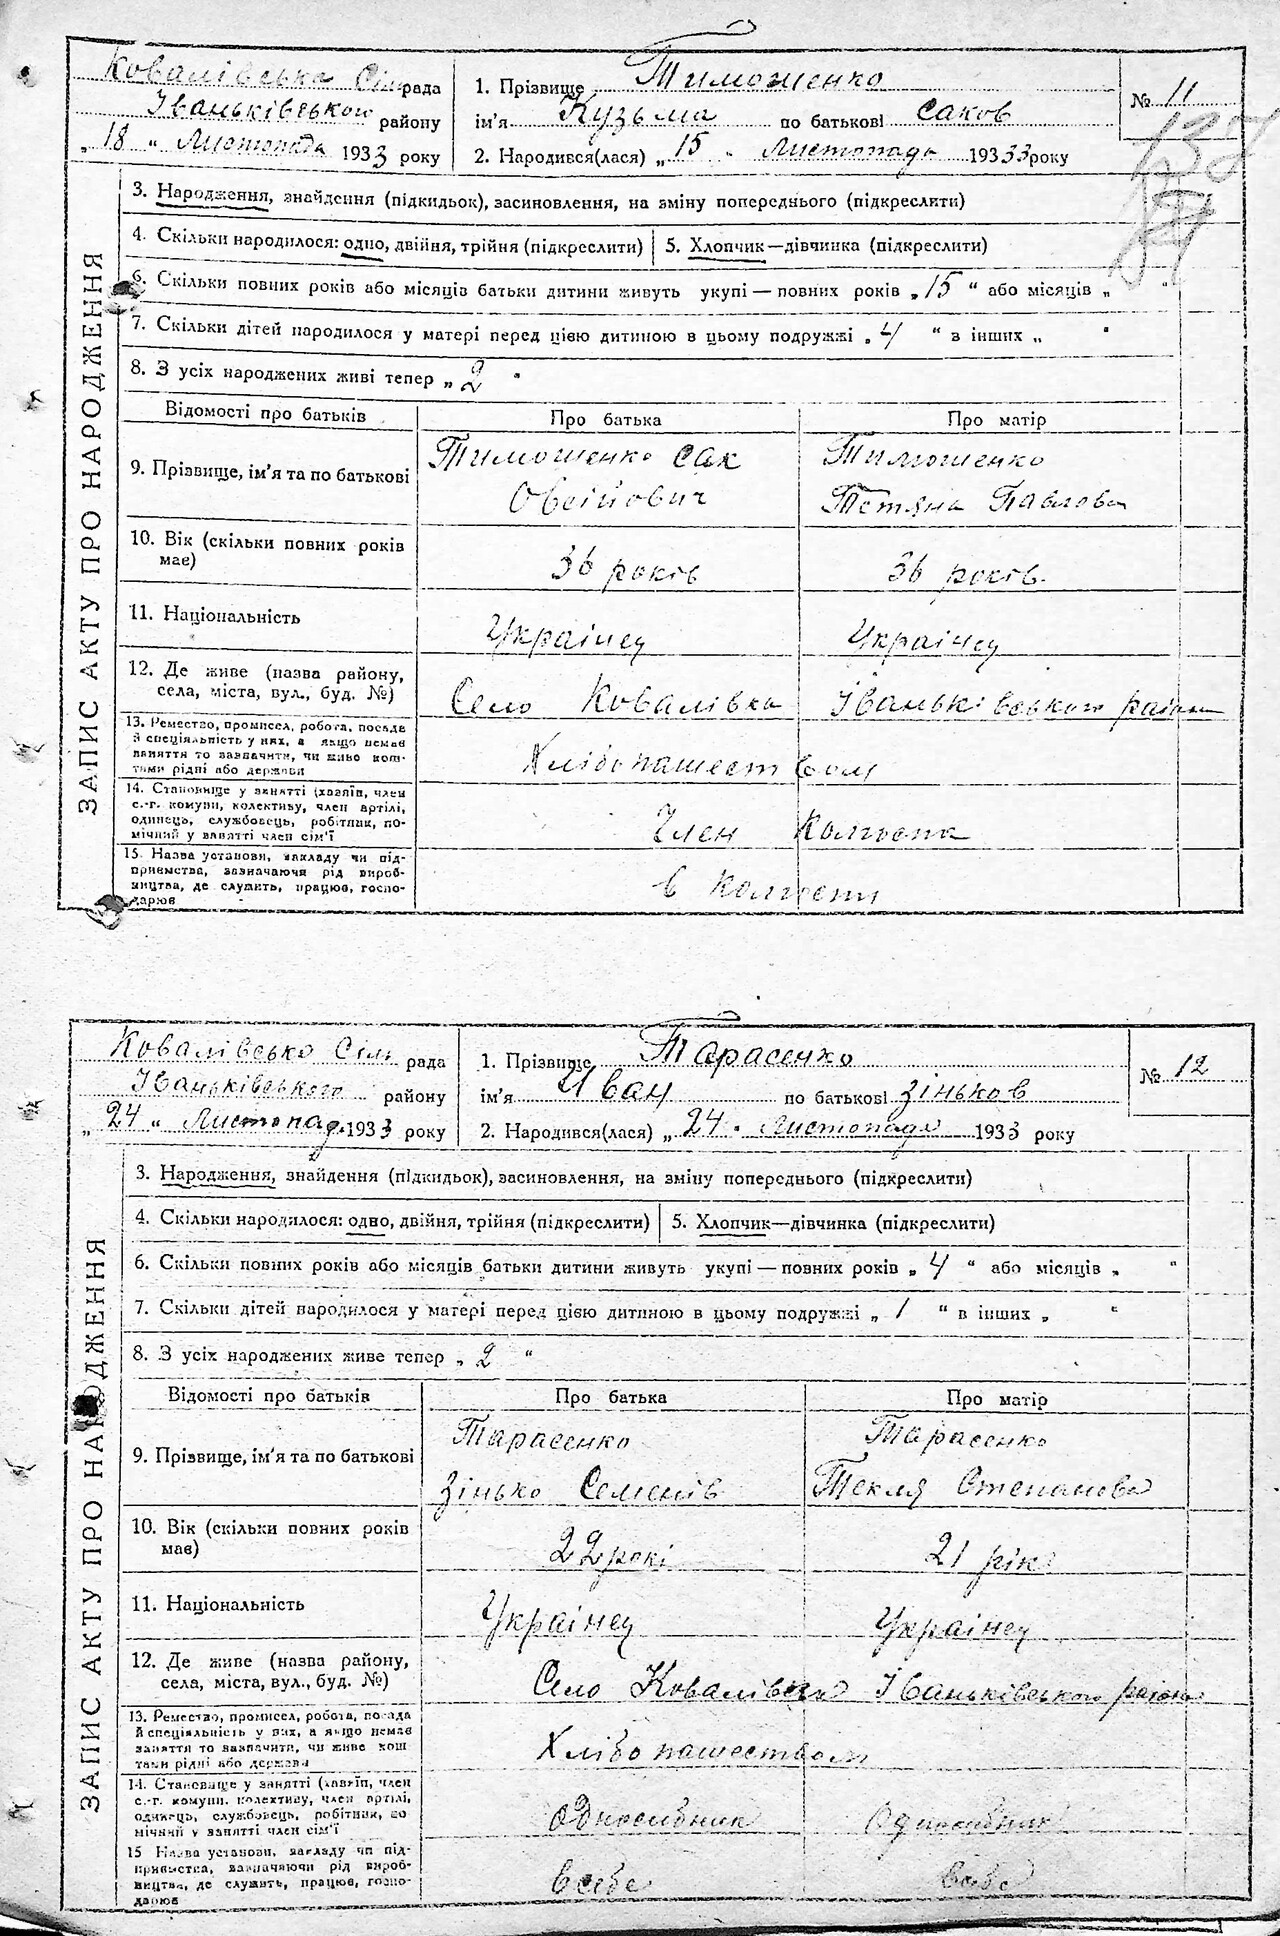 Ковалівська Сіль рада
Іваньківського району
„ 18 “ Листопада 1933 року
1. Прізвище Тимошенко
ім'я Кузьма по батькові Саков
2. Народився(лася) „ 15 „ Листопада 19333 року
№ 11
137
ЗАПИС АКТУ ПРО НАРОДЖЕННЯ
3. Народження, знайдення (підкидьок), засиновлення, на зміну попереднього (підкреслити)
4. Скільки народилося: одно, двійня, трійня (підкреслити) 5. Хлопчик—дівчинка (підкреслити)
6. Скільки повних років або місяців батьки дитини живуть укупі — повних років „ 15 “ або місяців „ “
7. Скільки дітей народилося у матері перед цією дитиною в цьому подружжі „ 4 “ з інших „ “
8. З усіх народжених живі тепер „ 2 “
Відомості про батьків Про батька Про матір
9. Прізвище, ім'я та по батькові
Тимошенко Сак
Овсійович
Тимошенко
Тетяна Павлова
10. Вік (скільки повних років
має)
36 років 36 років.
11. Національність
Украінец Украінец
12. Де живе (назва району,
села, міста, вул., буд. №)
Село Ковалівка Іваньківського район
13. Ремество, промисел, робота, посада
й спеціяльність у них, а якщо немає
заняття то зазначити, чи живе кош-
тами рідні або держави
Хлібопашеством
14. Становище у занятті (хазяїн, член
с.-г. комуни, колективу, член артілі,
одинець, службовець, робітник, по-
мічний у занятті член сім'ї
Член Колгоспа
15. Назва установи, закладу чи під-
приємства, зазначаючи рід вироб-
ництва, де служить, працює, госпо-
дарює
в Колгоспи
Ковалівсько Сіль рада
Іваньківського району
„ 24 “ Листопад 1933 року
1. Прізвище Тарасенко
ім'я Иван по батькові Зіньков
2. Народився(лася) „ 24 „ Листопада 1933 року
№ 12
ЗАПИС АКТУ ПРО НАРОДЖЕННЯ
3. Народження, знайдення (підкидьок), засиновлення, на зміну попереднього (підкреслити)
4. Скільки народилося: одно, двійня, трійня (підкреслити) 5. Хлопчик—дівчинка (підкреслити)
6. Скільки повних років або місяців батьки дитини живуть укупі — повних років „ 4 “ або місяців „ “
7. Скільки дітей народилося у матері перед цією дитиною в цьому подружжі „ 1 “ в інших „ “
8. З усіх народжених живе тепер „ 2 “
Відомості про батьків Про батька Про матір
9. Прізвище, ім'я та по батькові
Тарасенко
Зінько Семенів
Тарасенко
Текля Степанова
10. Вік (скільки повних років
має)
22 рокі 21 рік
11. Національність
Украінец Украінец
12. Де живе (назва району,
села, міста, вул., буд. №)
Село Ковалівка Іваньківського район
13. Ремество, промисел, робота, посада
й спеціяльність у них, а якщо немає
заняття то зазначити, чи живе кош
тами рідні або держави
Хлібопашеством
14. Становище у занятті (хазяїн, член
с.-г. комуни, колективу, член артілі,
одинець, службовець, робітник, по
мічний у занятті член сім'ї
Одиосибник Одиосибник
15 Назва установи, закладу чи під-
приємства, зазначаючи рід вироб-
ництва, де служить, працює, госпо-
дарює
В себе В себе